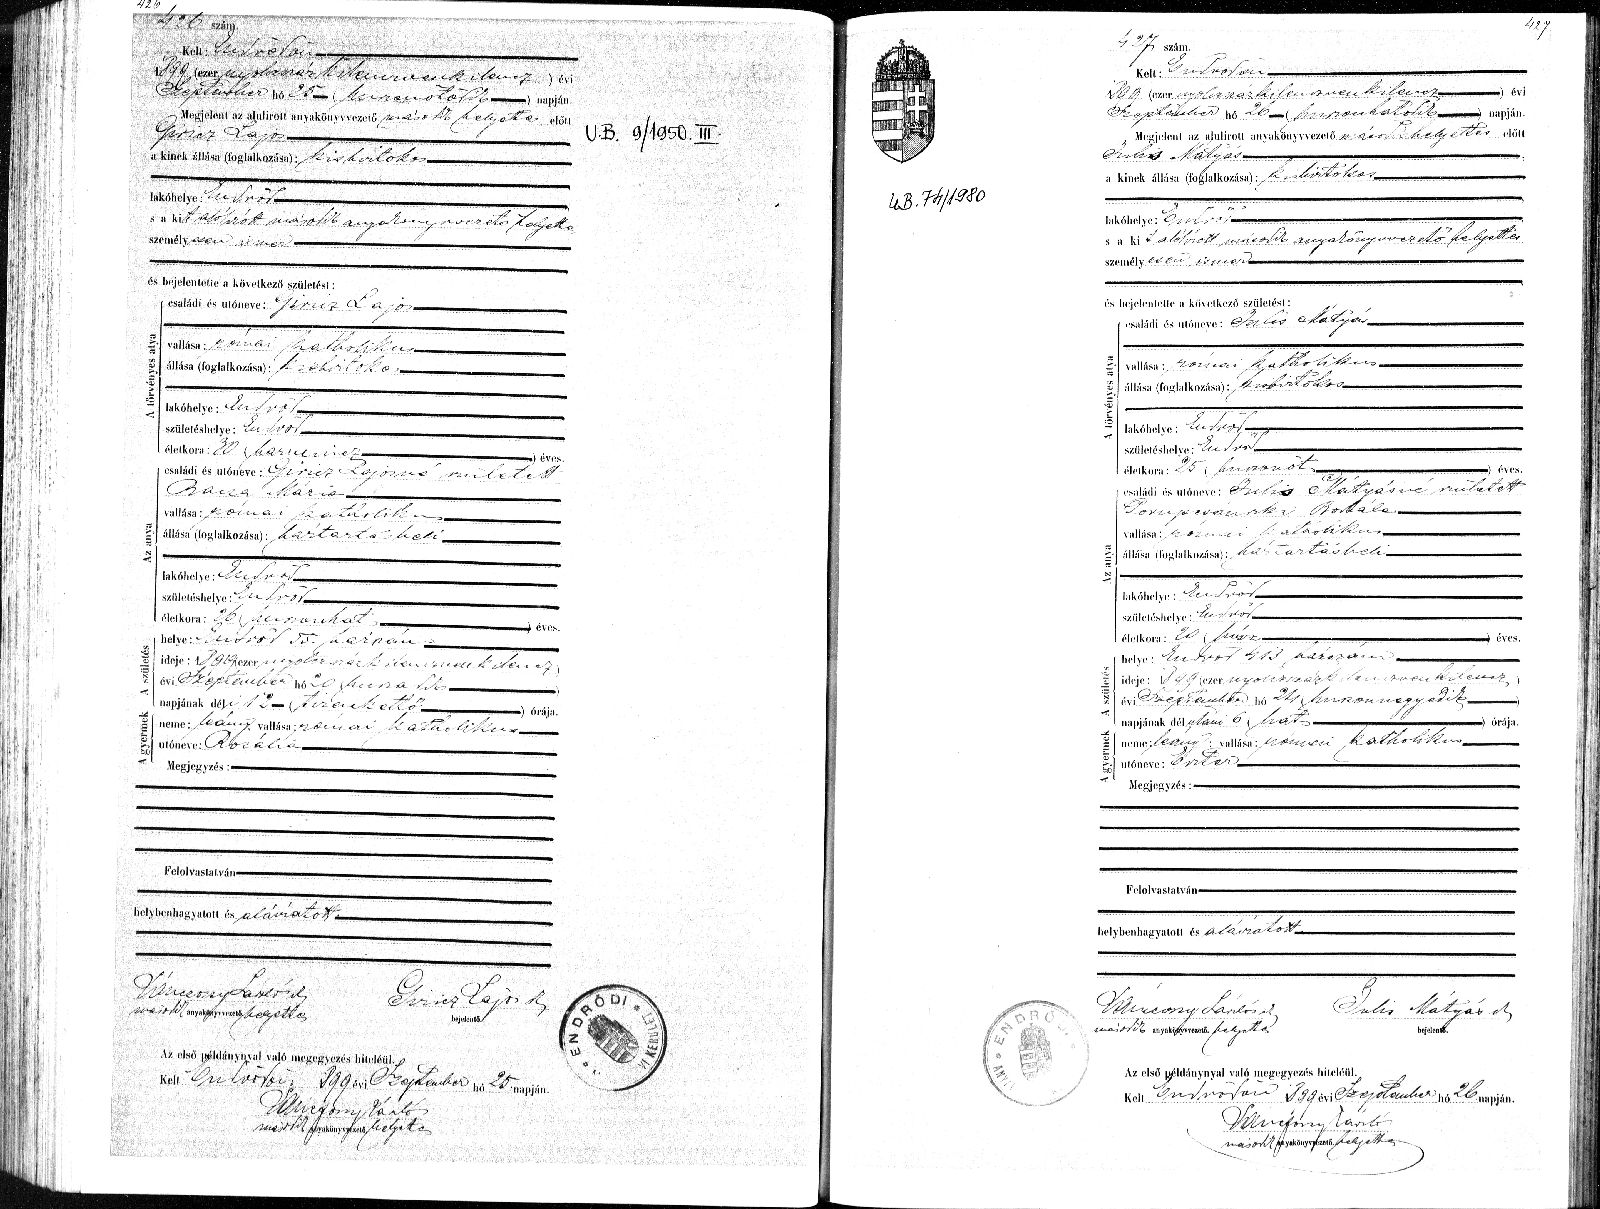 426
426 szám.
Kelt: Endrődön
1899 (ezer nyolczszáz kilenczvenkilencz) évi
Szeptember hó 25 (huszonötödik) napján.
Megjelent az alulirott anyakönyvvezető második helyettes előtt
Giricz Lajos
a kinek állása (foglalkozása): kisbirtokos
lakóhelye: Endrőd
s a kit alólirott második anyakönyvvezető helyettes
személyesen ismer
és bejelentette a következő születést:
A törvényes atya
családi és utóneve: Giricz Lajos
vallása: római katholikus
állása (foglalkozása): kisbirtokos
lakóhelye: Endrőd
születéshelye: Endrőd
életkora: 30 (harmincz) éves.
Az anya
családi és utóneve: Giricz Lajosné született
Mária
vallása: római katholikus
állása (foglalkozása): háztartásbeli
lakóhelye: Endrőd
születéshelye: Endrőd
életkora: 26 (huszonhat) éves.
A születés
helye: Endrőd
ideje: 1899 (ezer nyolczszáz kilenczvenkilencz)
évi Szeptember hó 20 (huszadik)
napjának déli 12 (tizenkettő) órája.
A gyermek
neme: leány; vallása: római katholikus
utóneve: Rozália
Megjegyzés:
Felolvastatván
helybenhagyatott és aláiratott
László
második anyakönyvvezető. helyettes
Giricz Lajos
bejelentő.
Az első példánynyal való megegyezés hiteléül.
Kelt Endrődön 1899 évi Szeptember hó 25 napján.
László
második anyakönyvvezető. helyettes
U.B. 9/1950. III
ENDRŐDI
KERÜLET
427
427 szám.
Kelt: Endrődön
1899 (ezer nyolczszáz kilenczvenkilencz) évi
Szeptember hó 26 (huszonhatodik) napján.
Megjelent az alulirott anyakönyvvezető második helyettes előtt
Iulis Mátyás
a kinek állása (foglalkozása): kisbirtokos
lakóhelye: Endrőd
s a kit alólirott második anyakönyvvezető helyettes
személyesen ismer
és bejelentette a következő születést:
A törvényes atya
családi és utóneve: Iulis Mátyás
vallása: római katholikus
állása (foglalkozása): kisbirtokos
lakóhelye: Endrőd
születéshelye: Endrőd
életkora: 25 (huszonöt) éves.
Az anya
családi és utóneve: Iulis Mátyásné született
Rozália
vallása: római katholikus
állása (foglalkozása): háztartásbeli
lakóhelye: Endrőd
születéshelye: Endrőd
életkora: 20 (húsz) éves.
A születés
helye: Endrőd 413 házszám
ideje: 1899 (ezer nyolczszáz kilenczvenkilencz)
évi Szeptember hó 24 (huszonnegyedik)
napjának délutáni 6 (hat) órája.
A gyermek
neme: leány; vallása: római katholikus
utóneve: Eszter
Megjegyzés:
Felolvastatván
helybenhagyatott és aláiratott
László
második anyakönyvvezető. helyettes
Iulis Mátyás
bejelentő.
Az első példánynyal való megegyezés hiteléül.
Kelt Endrődön 1899 évi Szeptember hó 26 napján.
László
második anyakönyvvezető. helyettes
U.B. 74/1980
ENDRŐDI